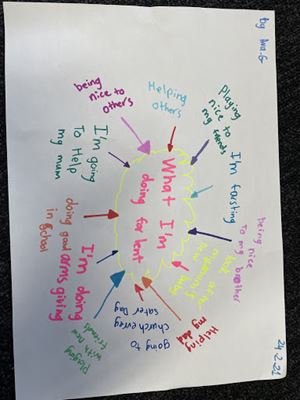 by
24.2.21
What + I'm
doing for lent
Helping
others
Playing
nice to
my friends
I'm farsting
being nice
to my brother
Helping
my dad
going to
church every
sater Day
playing
with new
friends
I'm doing
arms giving
doing good
in school
I'm going
To Help
my mum
being
nice to
others